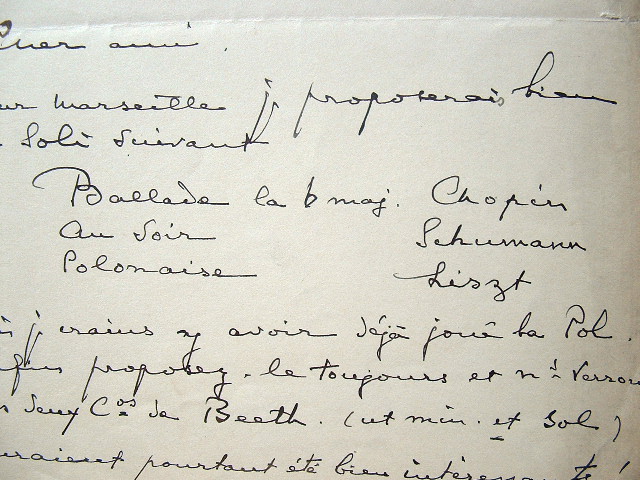 Cher ami.
ur Marseille je proposerais bien
Soli suivant
Ballade la b maj. Chopin
Au Soir Schumann
Polonaise Liszt
je crains y avoir déjà joué la Pol.
proposez-le toujours et ns verron
deux Cos de Beeth. (ut min. et Sol)
uraient pourtant été bien intéressants!